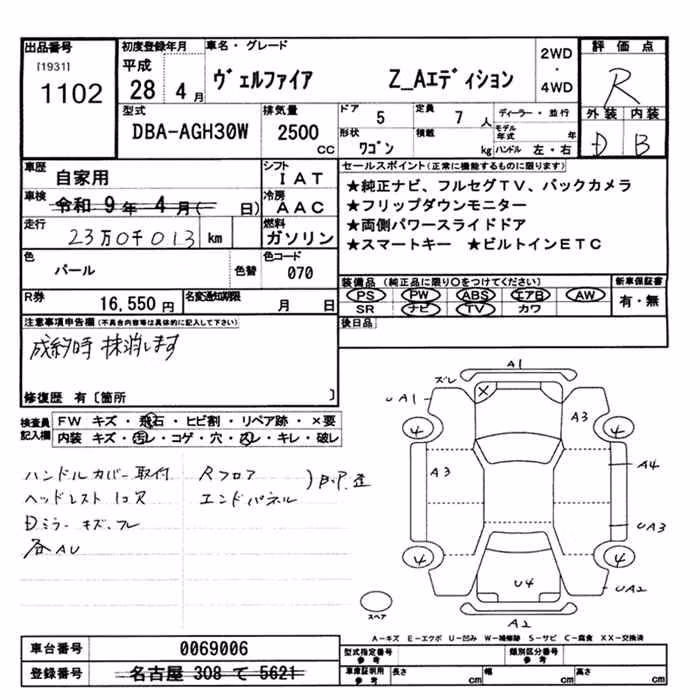 出品番号 初度登録年月 車名・グレード 2WD 評価点
[1931] 平成
1102 28 4月 ヴェルファイア Z_Aエディション ・ 4WD R
型式 排気量 ドア 5 定員 7人 ディーラー・並行 外装 内装
DBA-AGH30W 2500cc 形状 ワゴン 積載 kg モデル年式 年 ハンドル 左・右 D B
車歴 自家用 シフト IAT セールスポイント(正常に機能するものに限ります)
車検 令和 9年 4月( 日) 冷房 AAC ★純正ナビ、フルセグTV、バックカメラ
★フリップダウンモニター
走行 23万0千013 km 燃料 ガソリン ★両側パワースライドドア
★スマートキー ★ビルトインETC
色 パール 色替 色コード 070
R券 16,550円 名変通知期限 月 日 装備品(純正品に限り〇をつけてください) 新車保証書
PS PW ABS エアB AW 有・無
SR ナビ TV カワ
注意事項申告欄(不具合内容等は具体的に記入して下さい) 後日品
成約時 抹消します
修復歴 有〔箇所 〕
検査員記入欄 FW キズ・飛石・ヒビ割・リペア跡・×要
内装 キズ・汚レ・コゲ・穴・スレ・キレ・破レ
ハンドルカバー取付 Rフロア
ヘッドレスト1コ欠 エンドパネル
Dミラー キズ、フレ
各AU
A1
ズレ
UA1 A3
4 4
A3 A4
UA3
4 4
U4 UA2
スペア
A2
A-キズ E-エクボ U-凹み W-補修跡 S-サビ C-腐食 XX-交換済
車台番号 0069006 型式指定番号 参考 類別区分番号 参考
登録番号 名古屋 308 て 5621 車庫証明用 参考 長さ cm 幅 cm 高さ cm